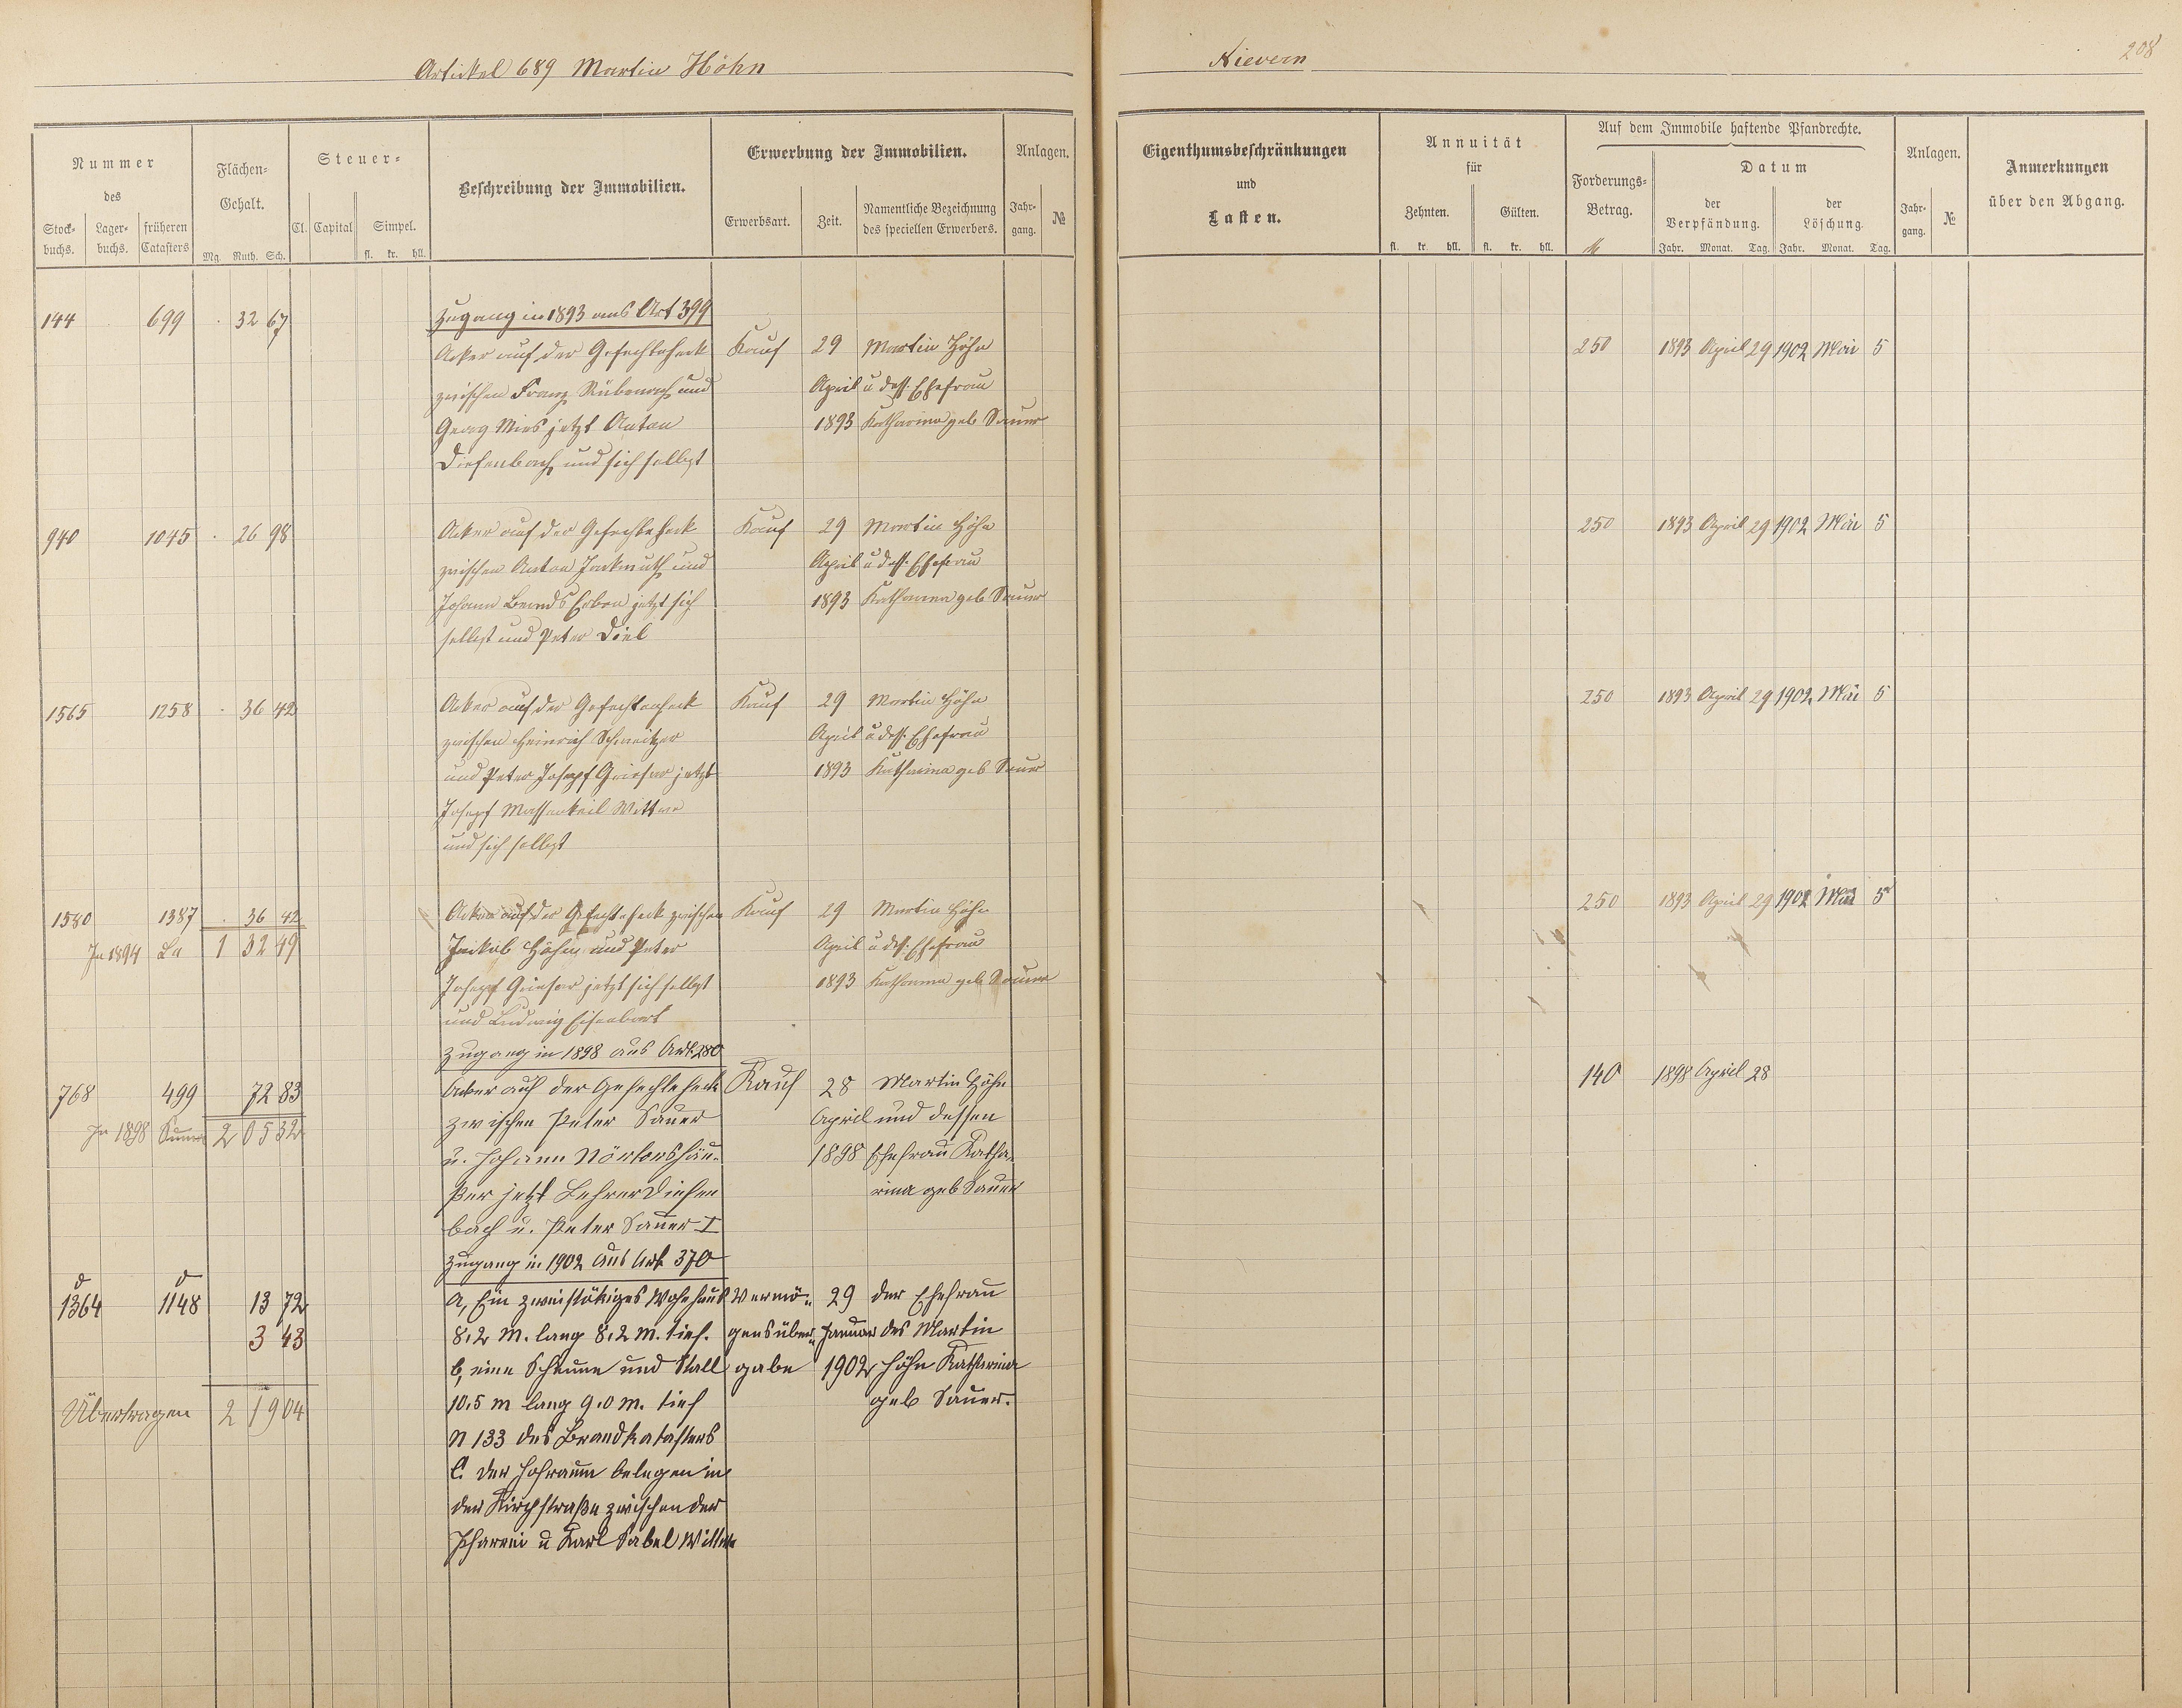 Artikel 689 Martin Höhn
Nievern
208
Nummer
des
Stock-buchs. Lager-buchs. früheren Catasters
Flächen-Gehalt.
Mg. Ruth. Sch.
Steuer-
Cl. Capital Simpel.
fl. kr. hll.
Beschreibung der Immobilien.
Erwerbung der Immobilien.
Erwerbsart. Zeit. Namentliche Bezeichnung des speciellen Erwerbers.
Anlagen.
Jahr-gang. №
Eigenthumsbeschränkungen
und
Lasten.
Annuität
für
Zehnten. Gülten.
fl. kr. hll. fl. kr. hll.
Auf dem Immobile haftende Pfandrechte.
Forderungs-Betrag.
M
Datum
der Verpfändung. der Löschung
Jahr. Monat. Tag. Jahr. Monat. Tag.
Anlagen.
Jahr-gang. №
Anmerkungen
über den Abgang.
Zugang in 1893 aus Art 399
144 699 . 32 67
Acker auf der Gefechtsheck Kauf 29 Martin Höhn 250 1893 April 29 1902 Mai 5
zwischen Franz Rübenach und April u dess. Ehefrau
Georg Mies jetzt Anton 1893 Katharina geb Sauer
Diefenbach und sich selbst
940 1045 . 26 98 Acker auf der Gefechtsheck Kauf 29 Martin Höhn 250 1893 April 29 1902 Mai 5
zwischen Anton und April u dess. Ehefrau
Johann Erben jetzt sich 1893 Katharina geb Sauer
selbst und Peter Diel
1565 1258 . 36 42 Acker auf der Gefechtsheck Kauf 29 Martin Höhn 250 1893 April 29 1902 Mai 5
zwischen Heinrich Schweitzer April u dess. Ehefrau
und Peter Josepf Griesar jetzt 1893 Katharina geb Sauer
Josepf Massenkeil Wittwe
und sich selbst
1580 1387 . 36 42 Acker auf der Gefechtsheck zwischen Kauf 29 Martin Höhn 250 1893 April 29 1902 Mai 5
In 1894 La 1 32 49 Jaikob Höhn und Peter April u dess. Ehefrau
Josepf Griesar jetzt sich selbst 1893 Katharina geb Sauer
und Ludwig Eisenbart
Zugang in 1898 aus Art. 280
768 499 72 83 Acker auf der Gefechtsheck Kauf 28 Martin Höhn 140 1898 April 28
In 1898 Summa 2 05 32 zwischen Peter Sauer April und dessen
u. Johann Nörtershäu- 1898 Ehefrau Katha-
ßer jetzt Lehrer Diefen rina geb Sauer
bach u. Peter Sauer I
Zugang in 1902 aus Art 370
1364 1148 13 72 a, Ein zweistökiges Wohnhaus Vermö- 29 der Ehefrau
3 43 8,2 M. lang 8,2 M. tief. gensüber- Januar des Martin
b, eine Scheune und Stall gabe 1902 Höhn Katharina
Übertragen 2 19 04 10,5 m lang 9,0 m. tief geb Sauer.
N 133 des Brandkatasters
C. der Hofraum belegen in
der Kirchstraße zwischen der
Pfarrei u Karl Sabel Wittwe